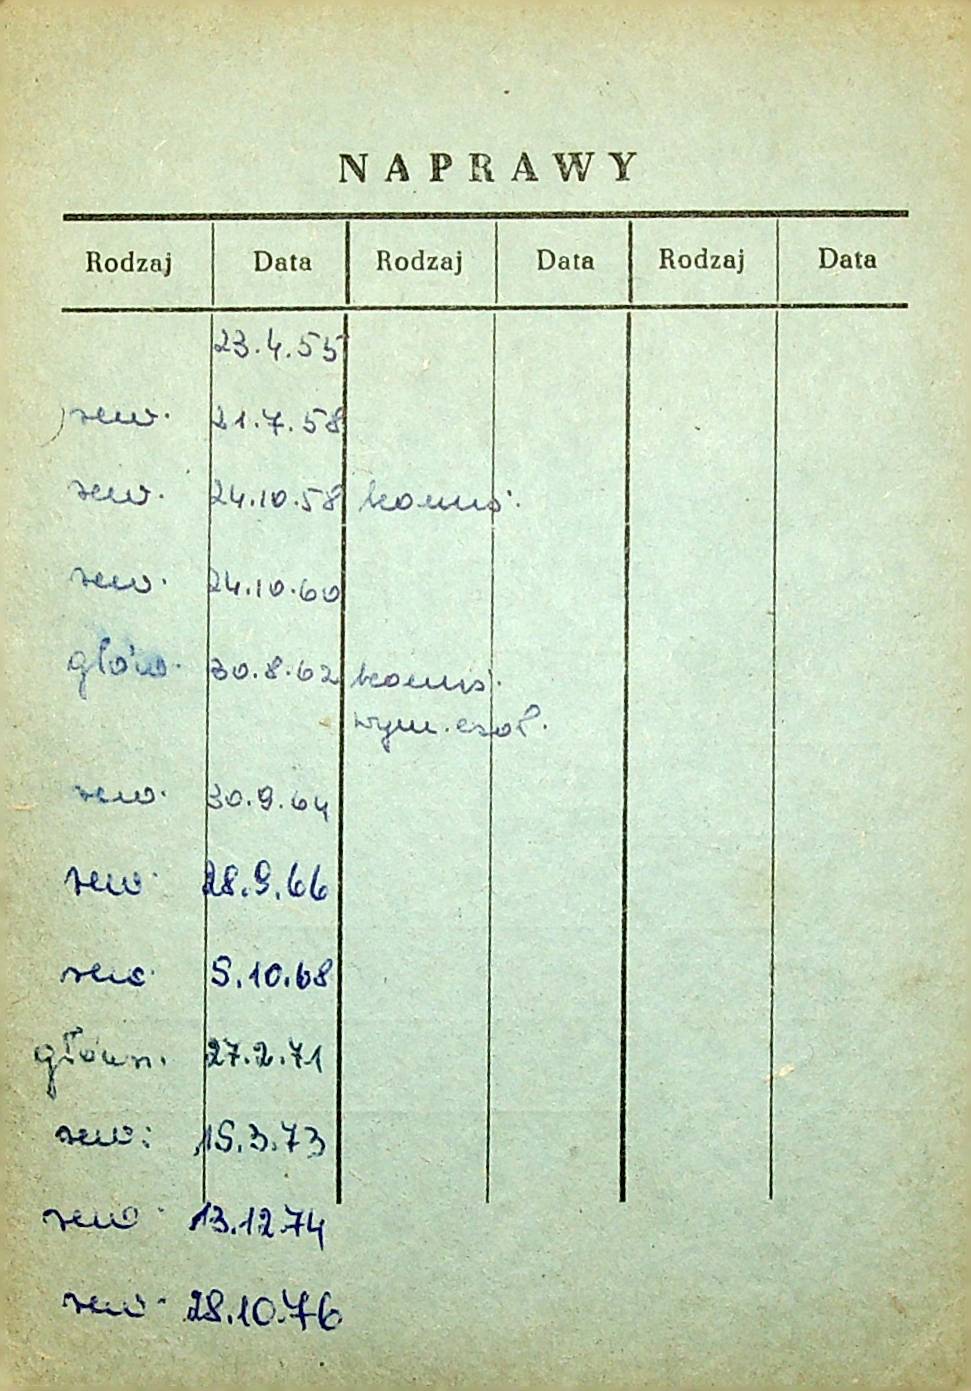 NAPRAWY
Rodzaj Data Rodzaj Data Rodzaj Data
23.4.55
rew. 21.7.58
rew. 24.10.58 komis.
rew. 24.10.60
głów. 30.8.62 komis.
wym. czoł.
rew. 30.9.64
rew. 28.9.66
rew. 5.10.68
główn. 27.2.71
rew. 15.3.73
rew. 13.12.74
rew. 28.10.76